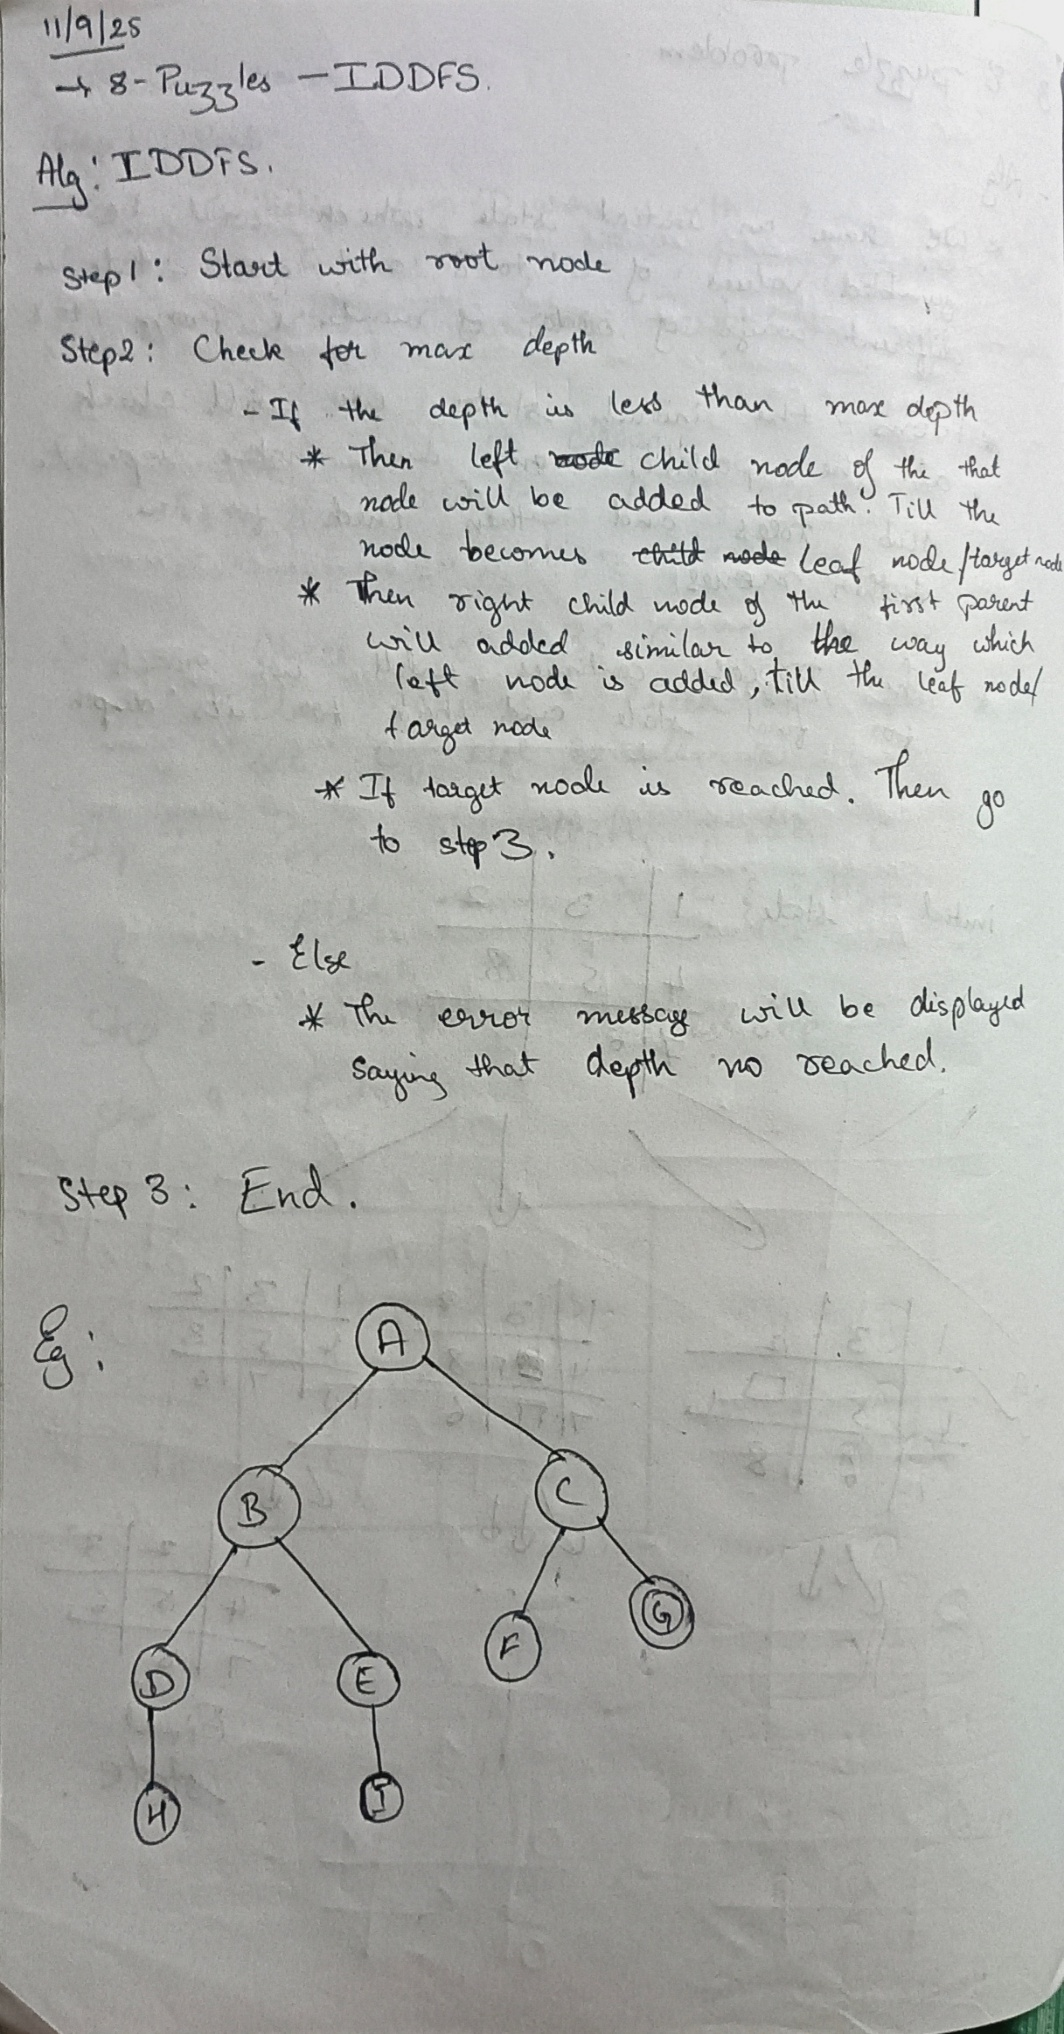 11/9/25
→ 8-Puzzles - IDDFS.
Alg: IDDFS.
Step1: Start with root node
Step2: Check for max depth
- If the depth is less than max depth
* Then left node child node of the that
node will be added to path. Till the
node becomes child node leaf node/target node
* Then right child node of the first parent
will added similar to the way which
left node is added, till the leaf node/
target node
* If target node is reached. Then go
to step 3.
- Else
* The error message will be displayed
saying that depth no reached.
Step 3: End.
Eg:
A
B C
D E F G
H I